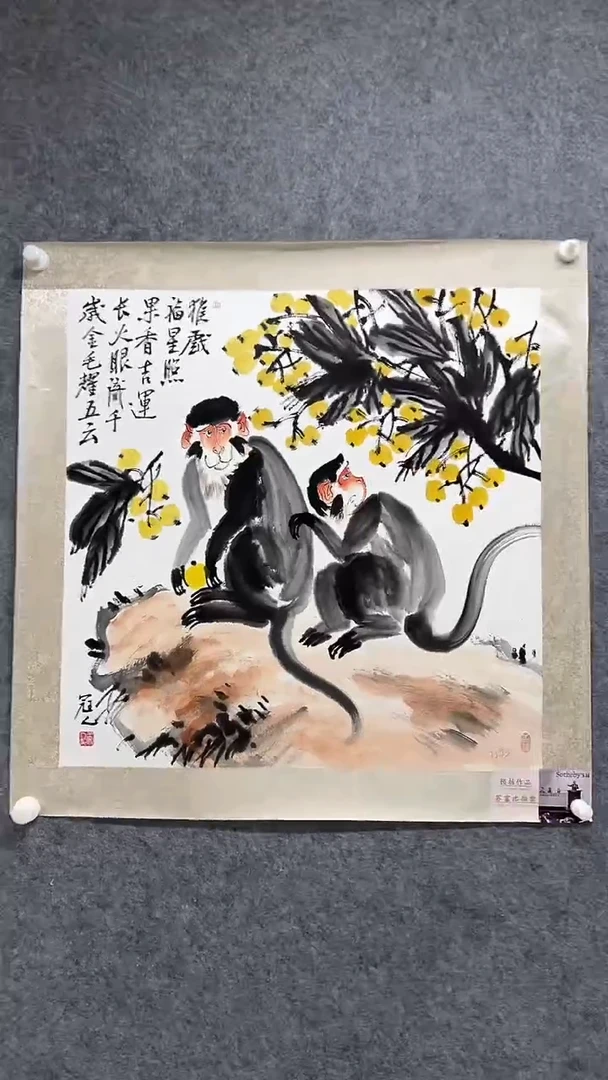 戲
福星照
果香吉運
长火眼千
歲金毛耀五云
Sotheby's